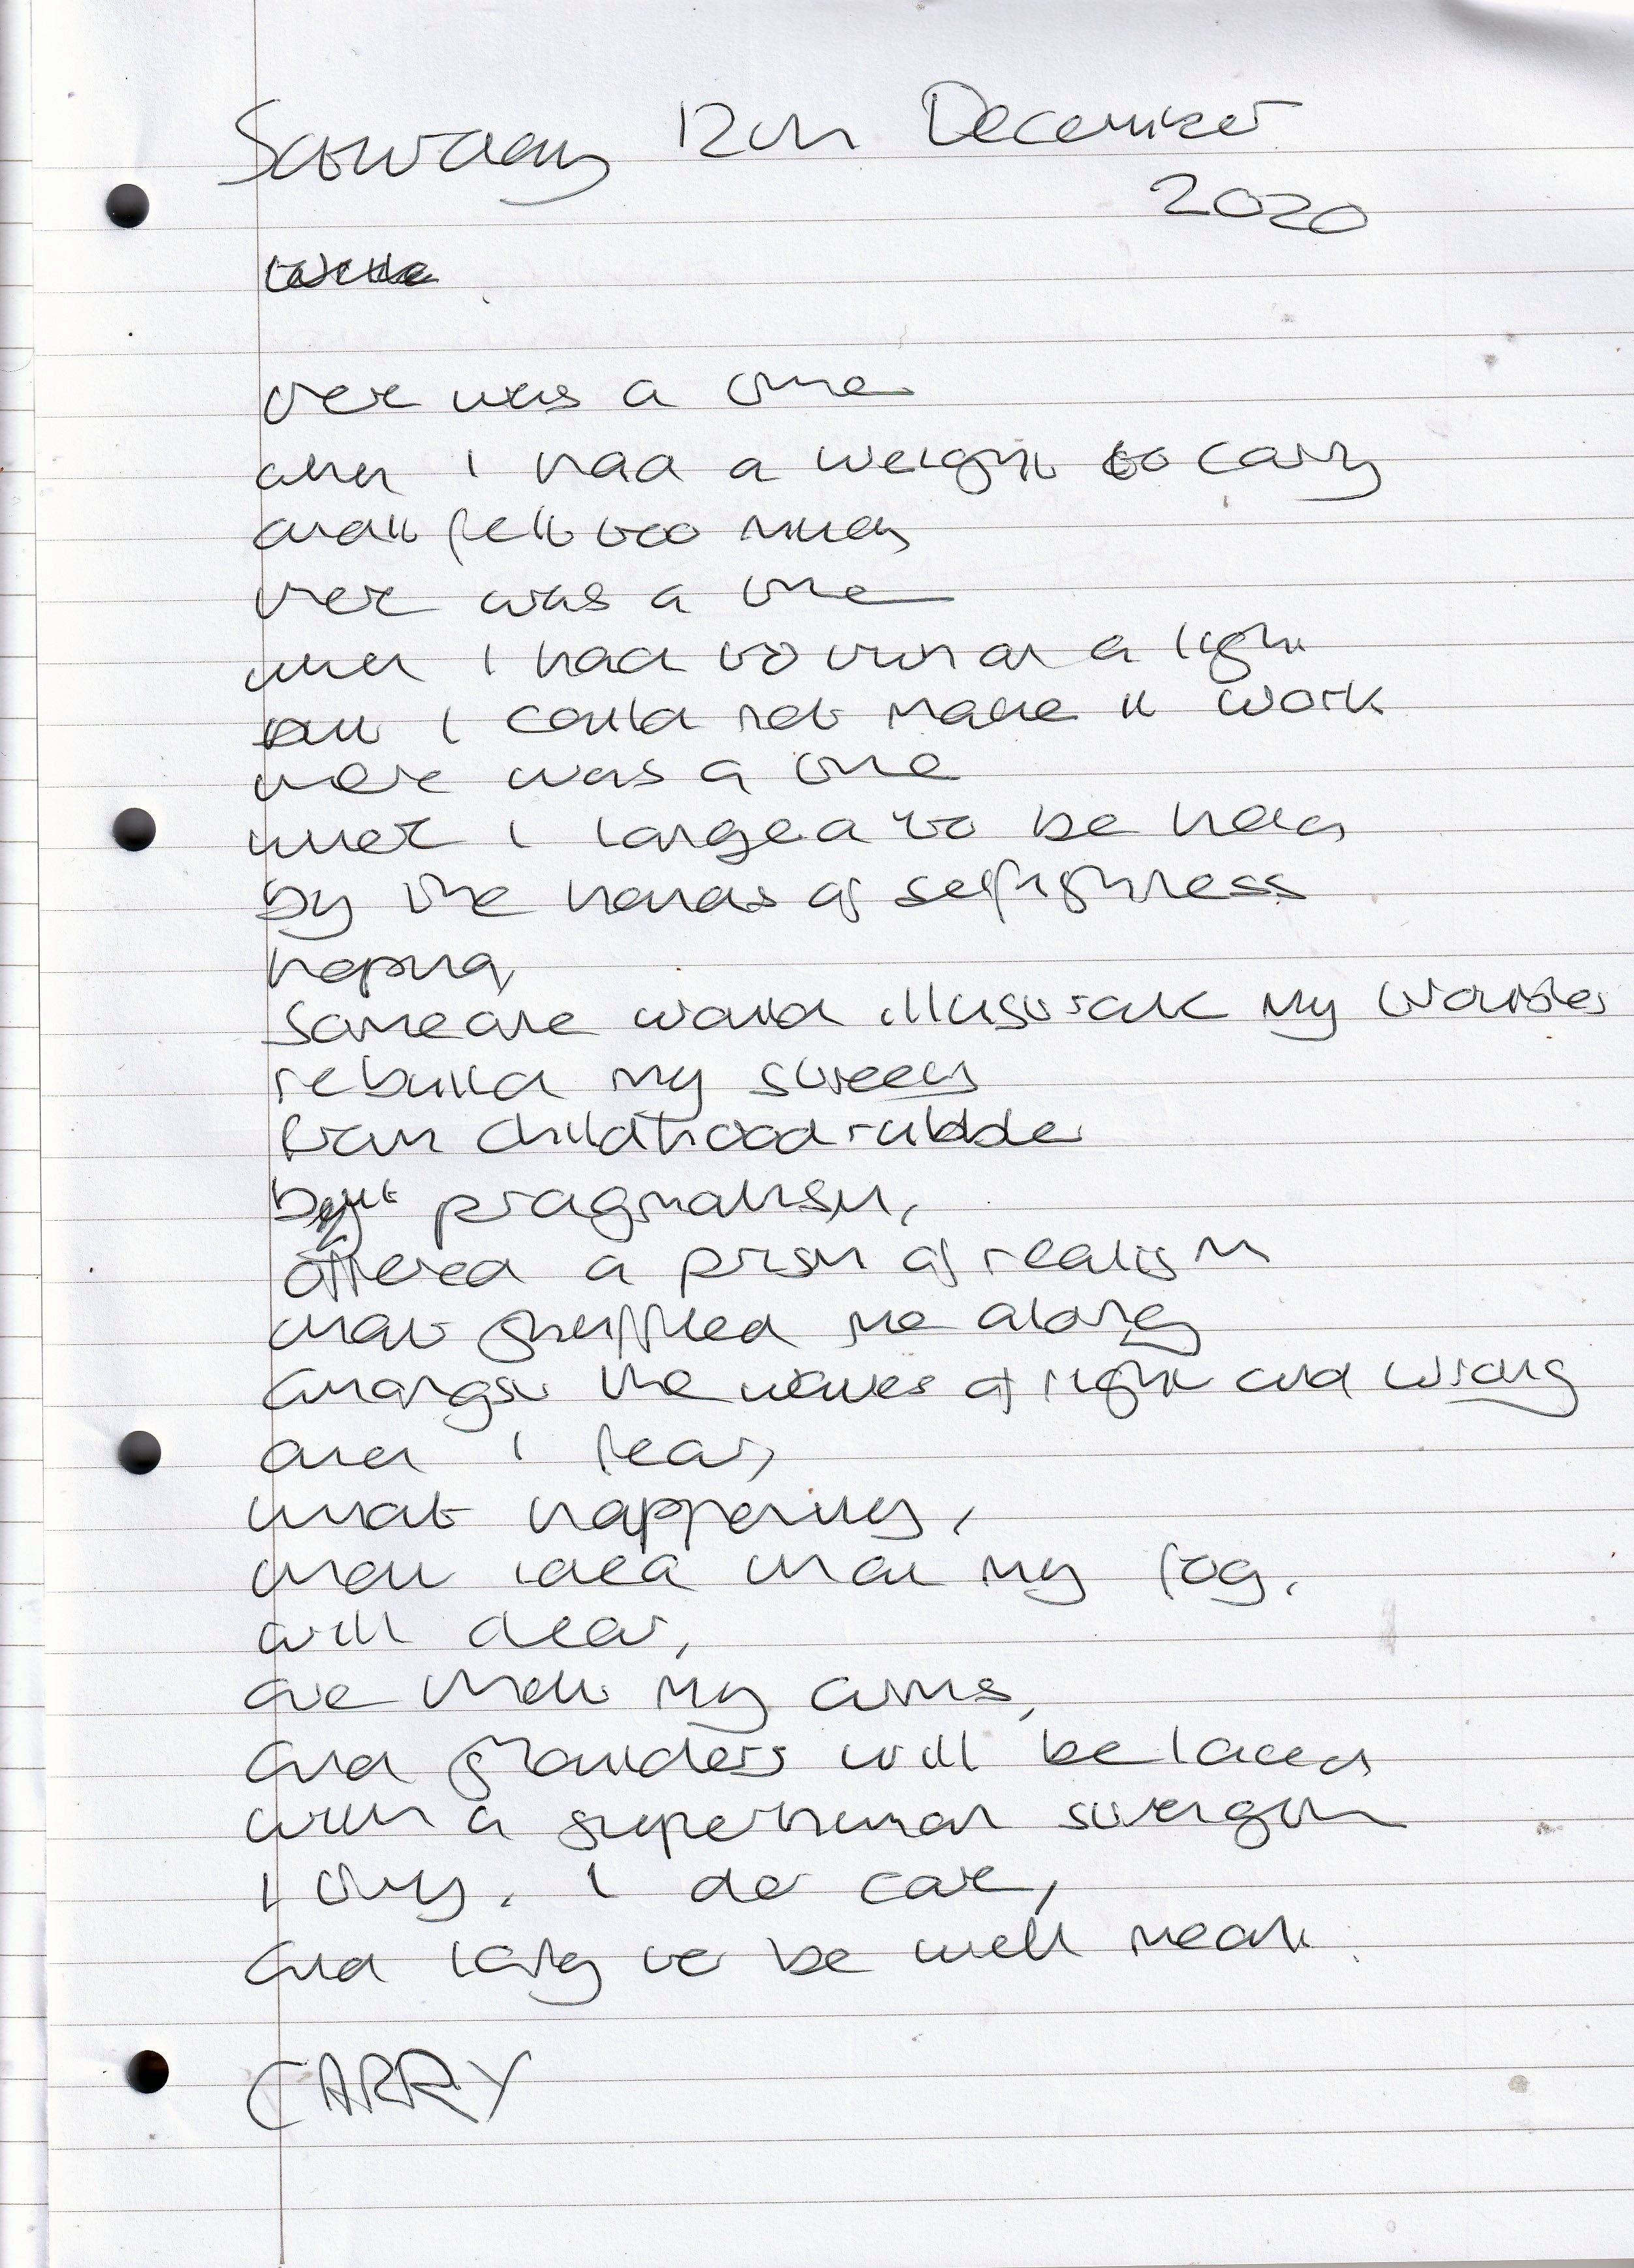 Saturday 12th December
2020
there was a time
when I had a weight to carry
and it felt too much
there was a time
when I had to turn on a light
but I could not make it work
there was a time
when I longed to be held
by the hands of selfishness
hoping,
someone would illustrate my troubles
rebuild my streets
from childhood rubble
but pragmatism,
offered a prism of realism
that shuffled me along
amongst the waves of right and wrong
and I fear,
that happening,
that idea that my fog,
will clear,
are that my arms,
and shoulders will be laced
with a superhuman strength
I try, I do care,
and long to be well meant.
CARRY